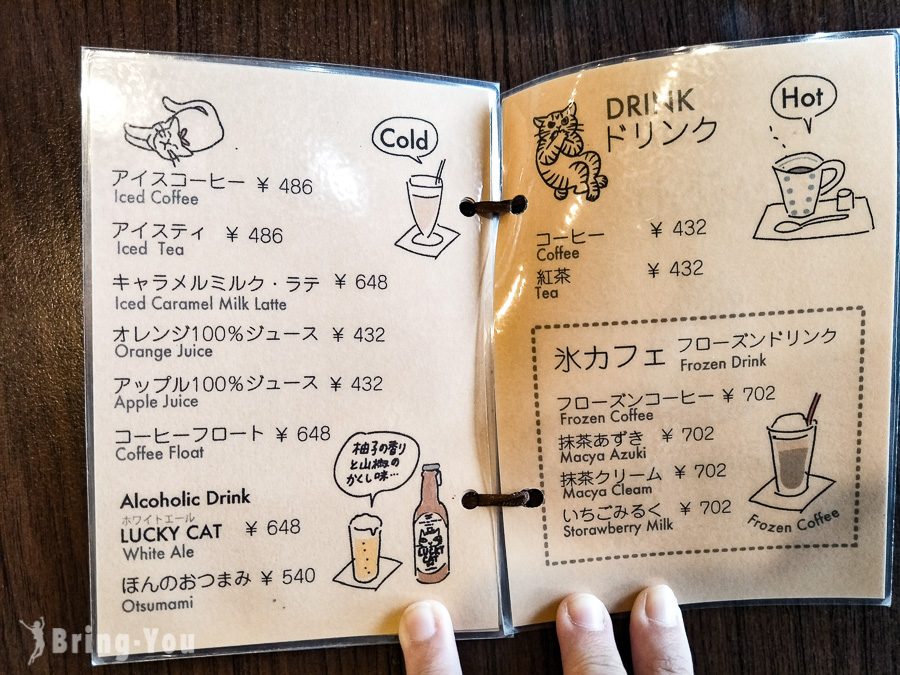 Cold
アイスコーヒー ¥ 486
Iced Coffee
アイスティ ¥ 486
Iced Tea
キャラメルミルク・ラテ ¥ 648
Iced Caramel Milk Latte
オレンジ100%ジュース ¥ 432
Orange Juice
アップル100%ジュース ¥ 432
Apple Juice
コーヒーフロート ¥ 648
Coffee Float
柚子の香り
と山椒の
かくし味…
Alcoholic Drink
ホワイトエール
LUCKY CAT ¥ 648
White Ale
ほんのおつまみ ¥ 540
Otsumami
LUCKY
CAT
DRINK
ドリンク
Hot
コーヒー ¥ 432
Coffee
紅茶 ¥ 432
Tea
氷カフェ フローズンドリンク
Frozen Drink
フローズンコーヒー ¥ 702
Frozen Coffee
抹茶あずき ¥ 702
Macya Azuki
抹茶クリーム ¥ 702
Macya Cleam
いちごみるく ¥ 702
Storawberry Milk
Frozen Coffee
Bring-You